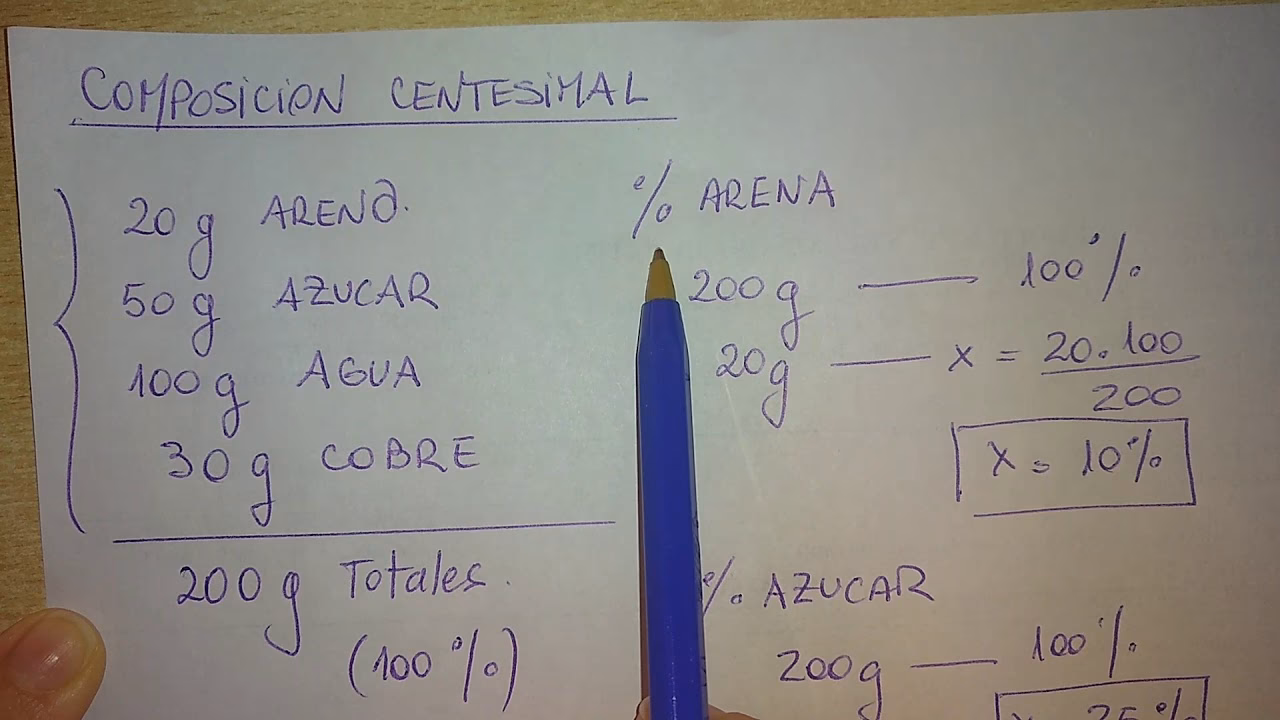 COMPOSICION CENTESIMAL
20 g ARENA.
50 g AZUCAR
100 g AGUA
30 g COBRE
200 g Totales.
(100 %)
% ARENA
200 g — 100 %
20 g — x = 20 . 100
200
x = 10 %
% AZUCAR
200 g — 100 %
x = 25 %